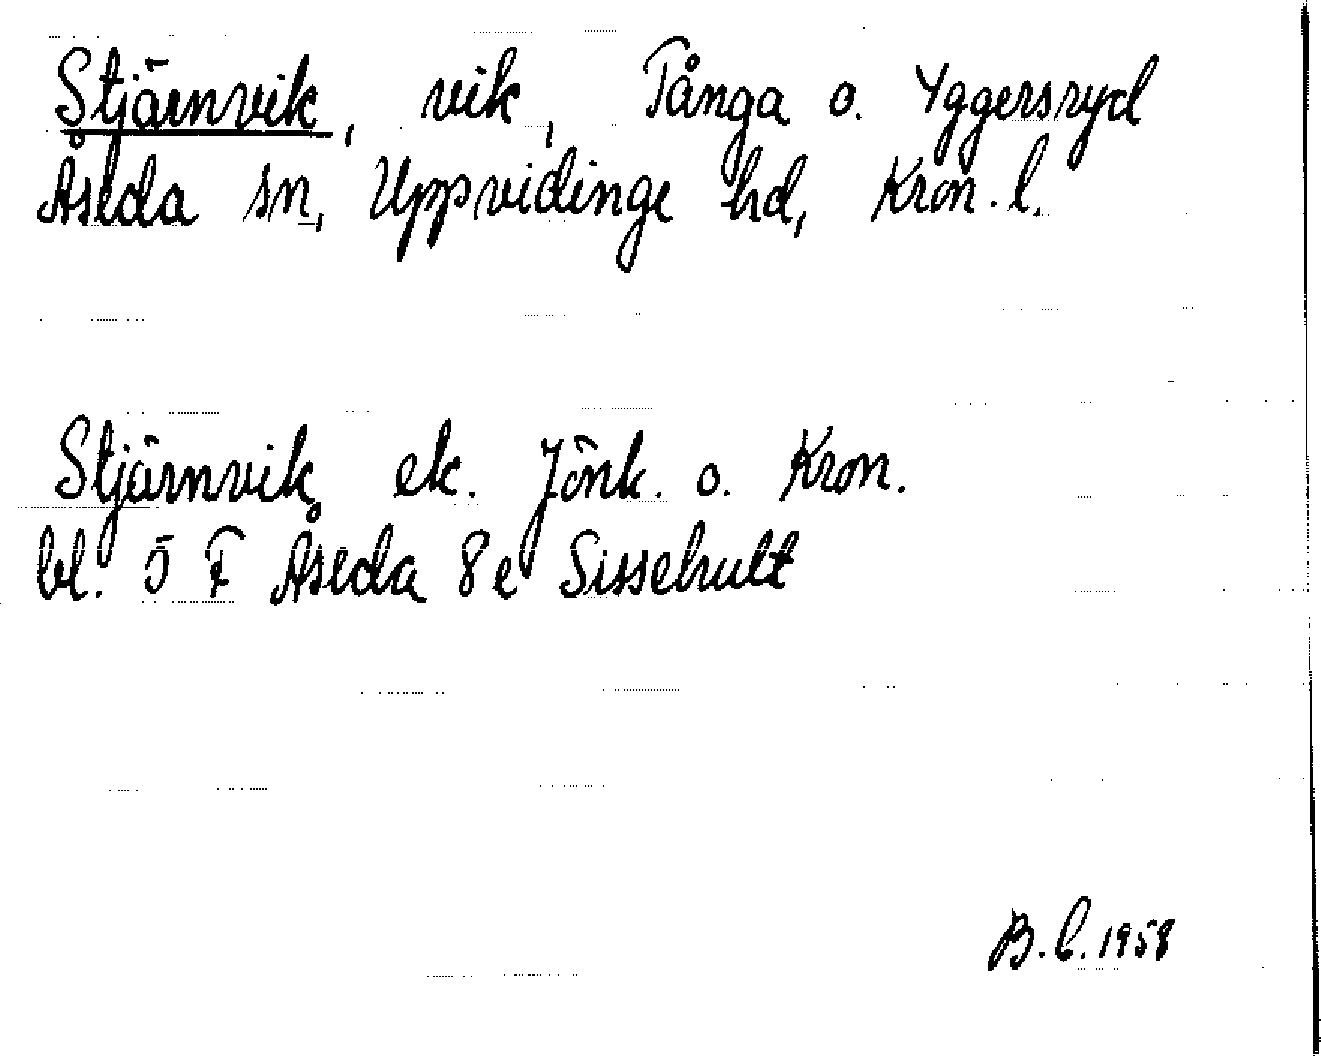 Stjärnvik, vik, Tånga o. Yggersryd
Åseda sn, Uppvidinge hd, Kron. l.
Stjärnvik ek. Jönk. o. Kron.
bl. 5 F Åseda 8 e Sissehult
B. C. 1958